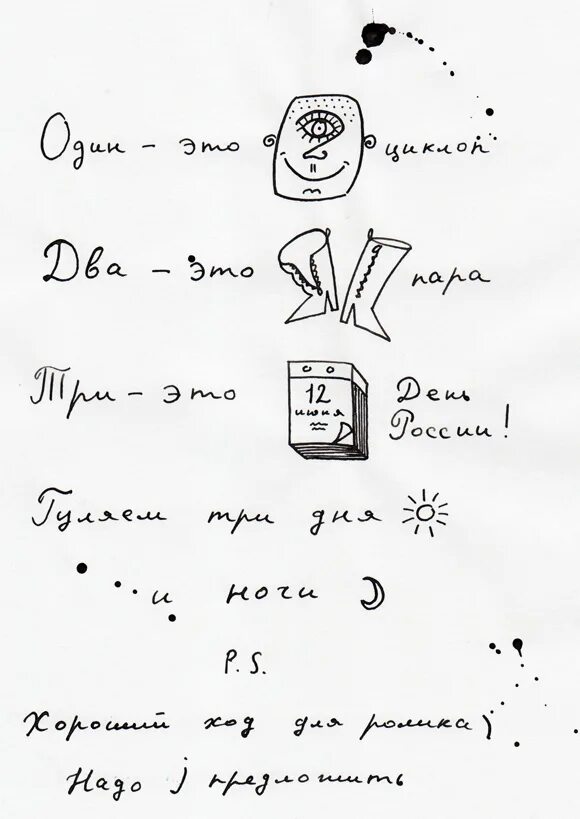 Один - это циклоп
Два - это пара
Три - это
12
июня
День
России!
Гуляем три дня
и ночи
P.S.
Хороший ход для ролика)
Надо ) предложить